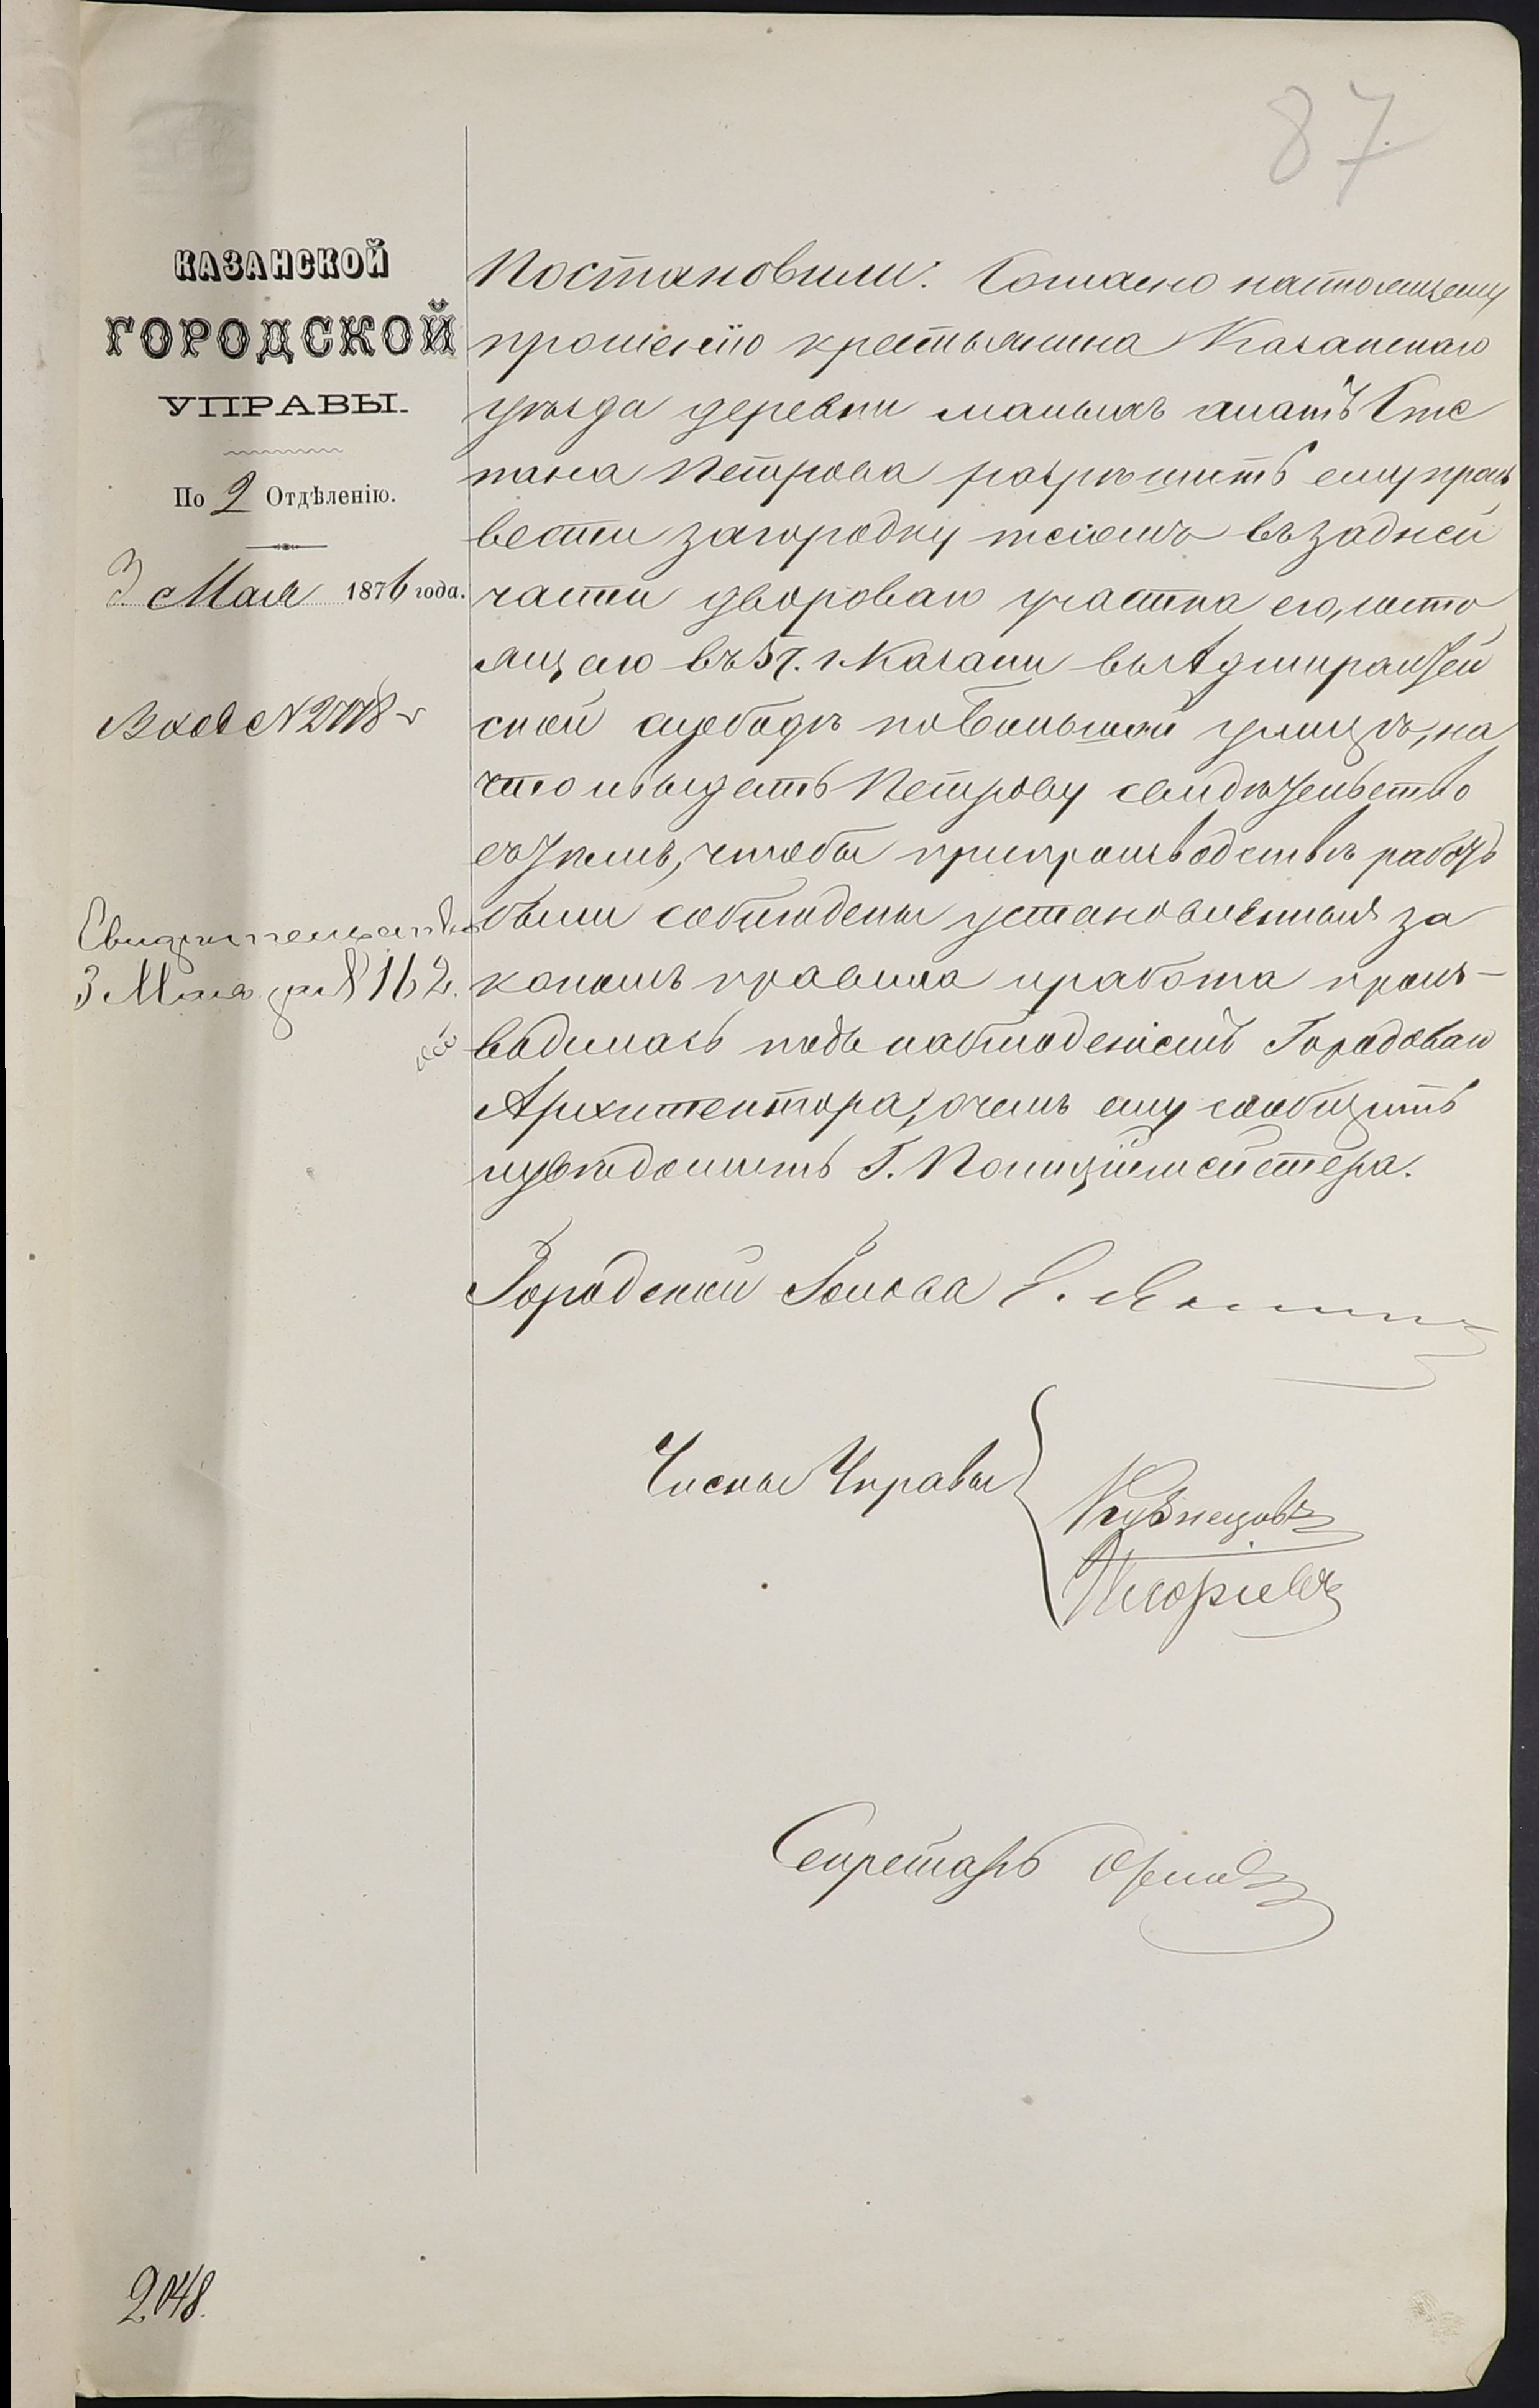 87
КАЗАНСКОЙ
ГОРОДСКОЙ
УПРАВЫ.
По 2 Отдѣленію.
3 Мая 1876 года.
Вход № 2778
Свидѣтельство
3 Мая за № 162.
Постановили: Согласно настоящему
прошенію крестьянина Казанскаго
уѣзда деревни малыхъ Сте
пана Петрова разрѣшить ему произ
вести загородку тесомъ въ задней
части двороваго участка его, состо
ящаго въ 5 ч. г. Казани въ Адмиралтей
ской слободѣ по Большой улицѣ, на
что и выдать Петрову свидѣтельство
съ тѣмъ, чтобы при производствѣ работъ
были соблюдены установленныя за
кономъ правила и работа произ-
водилась подъ наблюденіемъ Городоваго
Архитектора, о чемъ ему сообщить
и увѣдомить Г. Полиціймейстера.
Городской Голова Е.
Члены Управы
Кузнецовъ
Секретарь
2048.